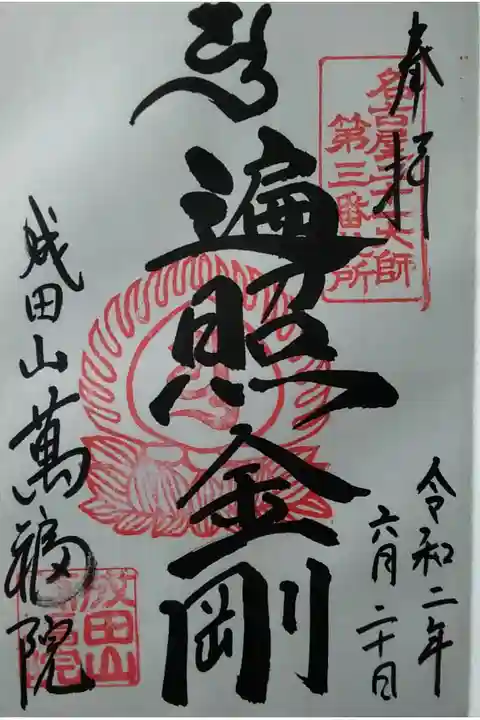 奉拝
名古屋二十一大師
第三番札所
遍照金剛
令和二年
六月二十日
成田山萬福院
成田山
萬福院